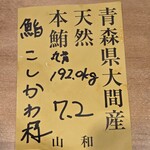 青森県大間産
天然
本鮪
192.0kg
7.2
山和
鮨こしかわ様